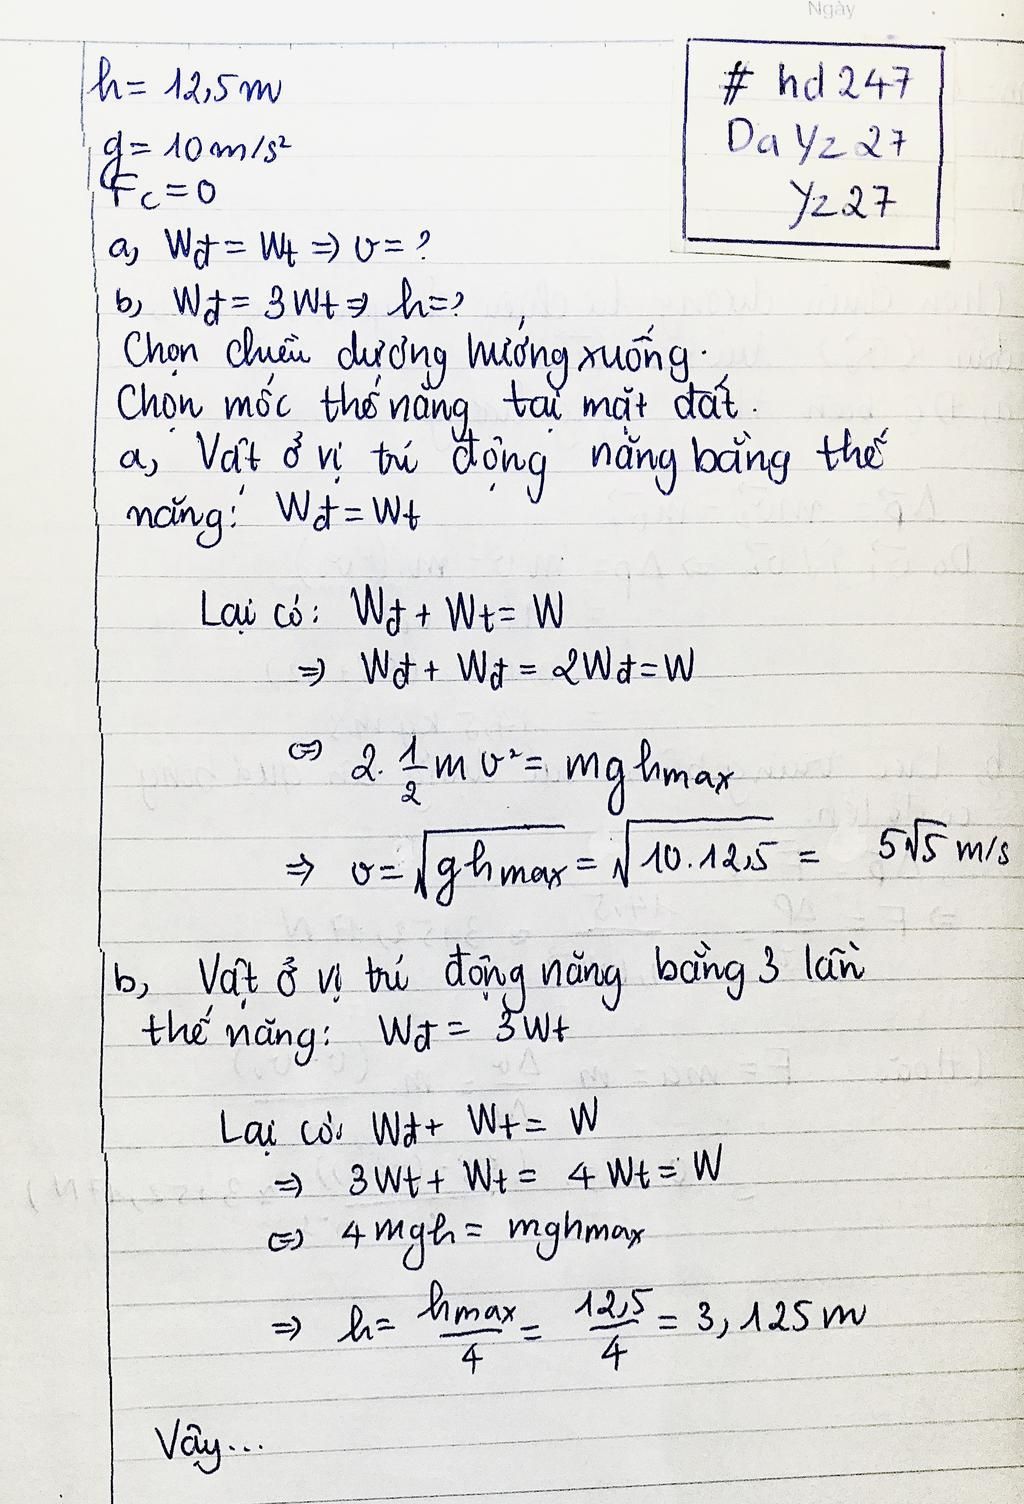 Ngày
# hd 247
Da Yz 27
Yz 27
h = 12,5 m
g = 10 m/s²
Fc = 0
a, Wđ = Wt ⇒ v = ?
b, Wđ = 3Wt ⇒ h = ?
Chọn chiều dương hướng xuống.
Chọn mốc thế năng tại mặt đất.
a, Vật ở vị trí động năng bằng thế
năng: Wđ = Wt
Lại có: Wđ + Wt = W
⇒ Wđ + Wđ = 2Wđ = W
⇔ 2. 1/2 m v² = mghmax
⇒ v = √ghmax = √10.12,5 = 5√5 m/s
b, Vật ở vị trí động năng bằng 3 lần
thế năng: Wđ = 3Wt
Lại có: Wđ + Wt = W
⇒ 3Wt + Wt = 4Wt = W
⇔ 4mgh = mghmax
⇒ h = hmax/4 = 12,5/4 = 3,125 m
Vậy...